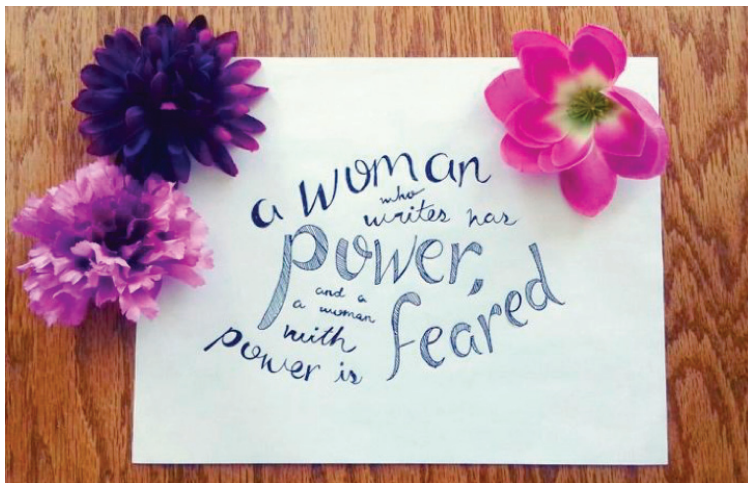 a woman
who
writes has
power,
and a
a woman
with
power is
feared